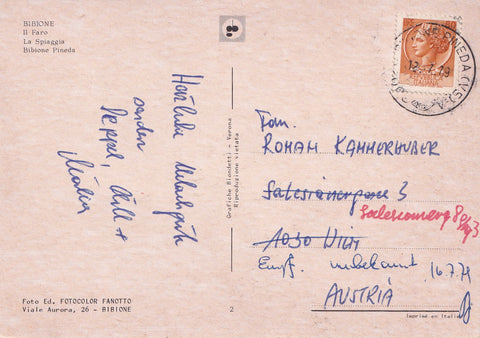 BIBIONE
Il Faro
La Spiaggia
Bibione Pineda
Herzliche Urlaubsgrüße
senden
Seppl, Willi +
Maria
Grafiche Biondetti - Verona
Riproduzione vietata
Fam.
ROMAN KAMMERHUBER
Salesianergasse 3
Salesianerg 8
1030 WIEN
Empf. unbekannt 16.7.79
AUSTRIA
Foto Ed. FOTOCOLOR FANOTTO
Viale Aurora, 26 - BIBIONE
2
Imprimé en Italie
PINEDA (VE)